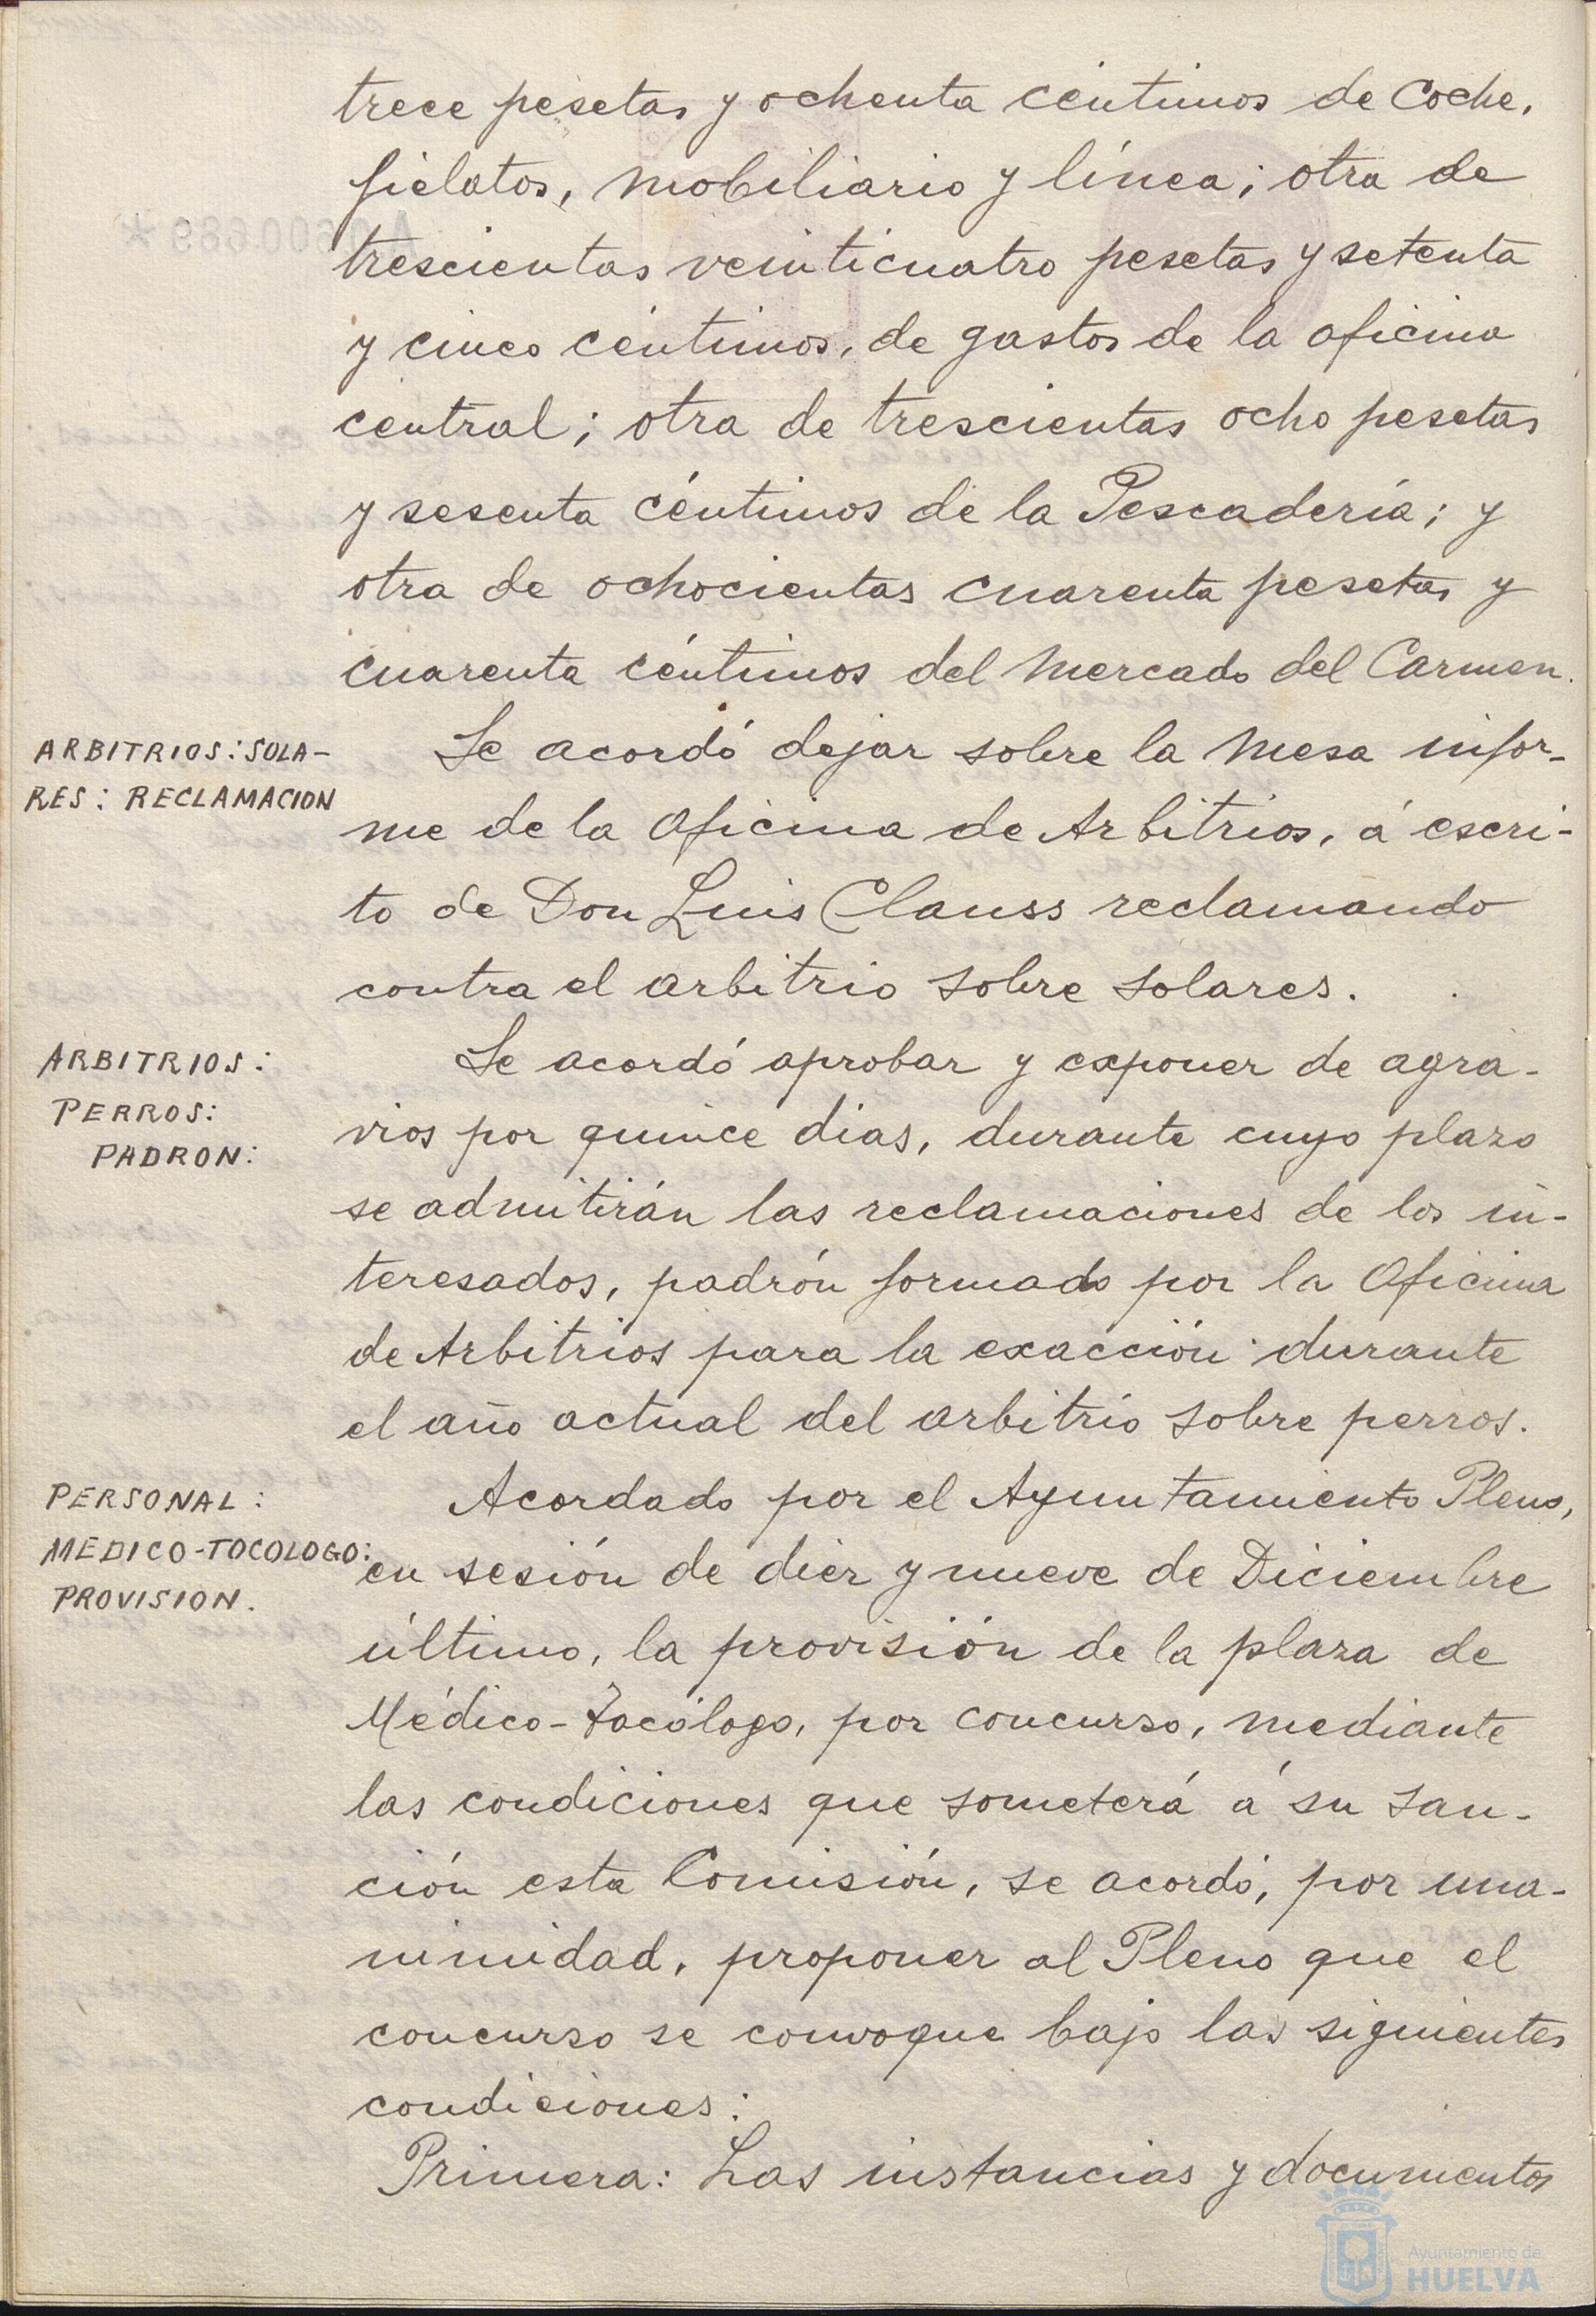 trece pesetas y ochenta céntimos de Coche,
fielatos, mobiliario y línea; otra de
trescientas veinticuatro pesetas y setenta
y cinco céntimos, de gastos de la oficina
central; otra de trescientas ocho pesetas
y sesenta céntimos de la Pescadería; y
otra de ochocientas cuarenta pesetas y
cuarenta céntimos del Mercado del Carmen.
ARBITRIOS: SOLA-
RES: RECLAMACION
Se acordó dejar sobre la Mesa infor-
me de la Oficina de Arbitrios, á escri-
to de Don Luis Clauss reclamando
contra el arbitrio sobre solares.
ARBITRIOS:
PERROS:
PADRON:
Se acordó aprobar y exponer de agra-
vios por quince dias, durante cuyo plazo
se admitirán las reclamaciones de los in-
teresados, padrón formado por la Oficina
de Arbitrios para la exacción durante
el año actual del arbitrio sobre perros.
PERSONAL:
MEDICO-TOCOLOGO:
PROVISION.
Acordado por el Ayuntamiento Pleno,
en sesión de diez y nueve de Diciembre
último, la provisión de la plaza de
Médico-Tocólogo, por concurso, mediante
las condiciones que someterá á su san-
ción esta Comisión, se acordó, por una-
nimidad, proponer al Pleno que el
concurso se convoque bajo las siguientes
condiciones:
Primera: Las instancias y documentos
Ayuntamiento de
HUELVA